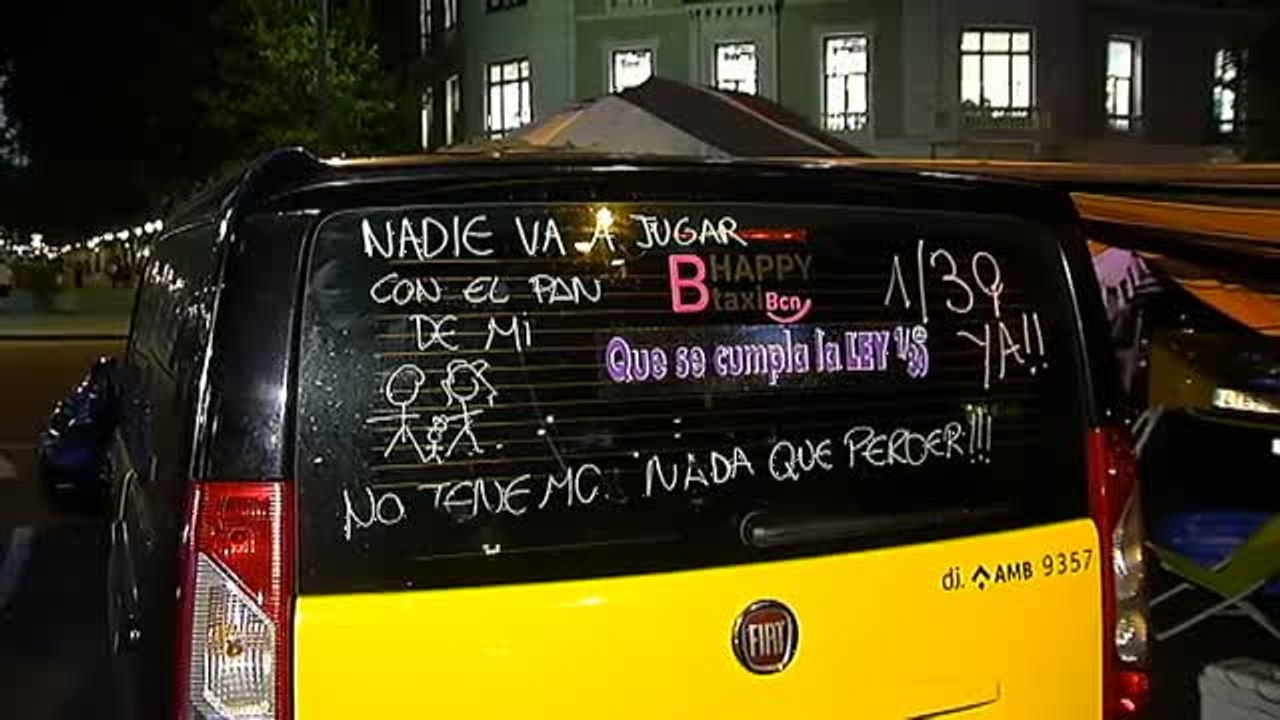 NADIE VA A JUGAR
CON EL PAN
DE MI
B HAPPY
taxi Bcn
Que se cumpla la LEY 1/30
1/30
YA!!
NO TENEMO. NADA QUE PERDER!!!
dj. AMB 9357
FIAT